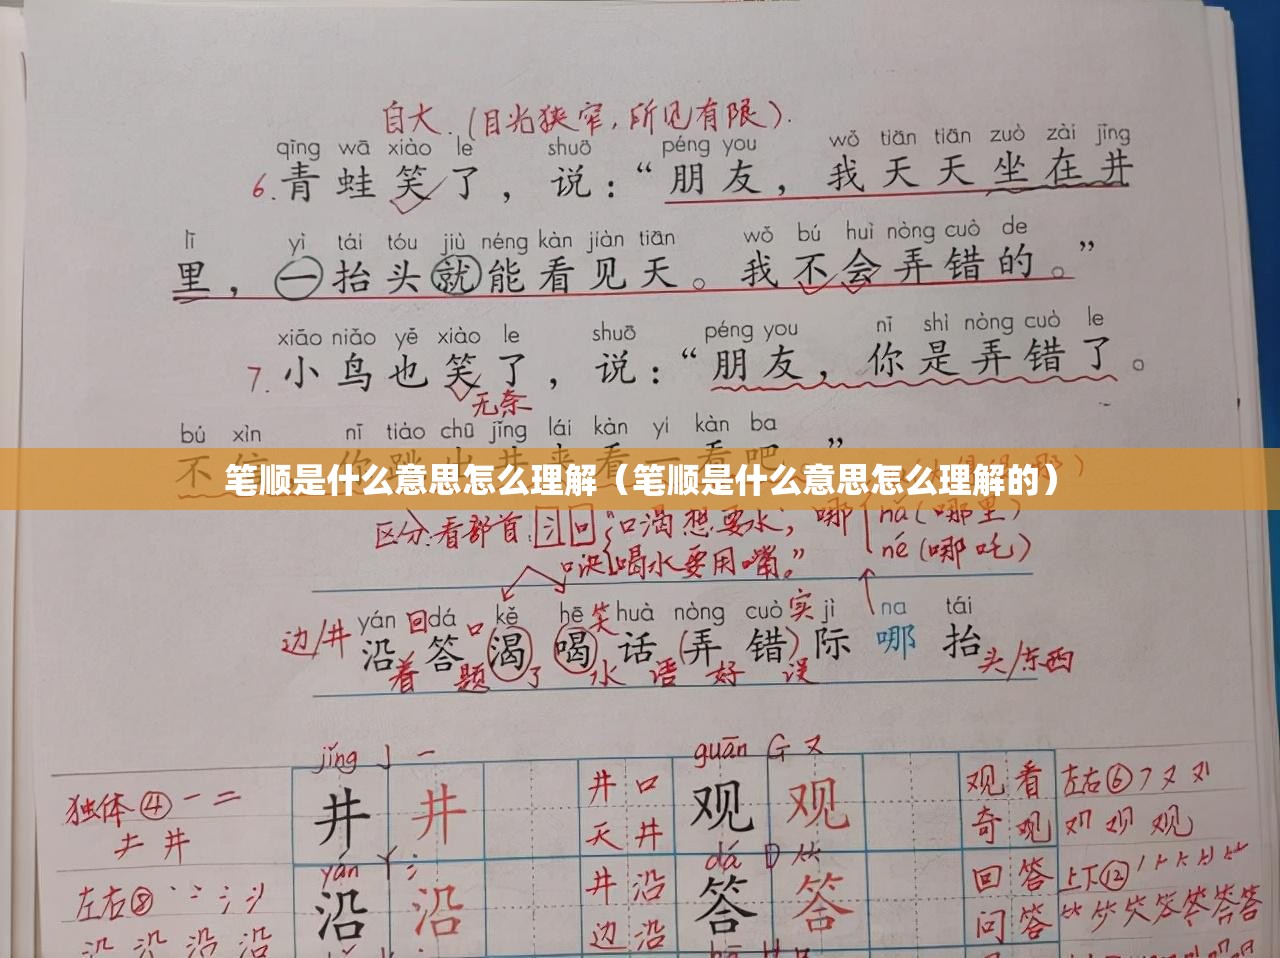 自大.(目光狭窄,所见有限).
qīng wā xiào le shuō péng you wǒ tiān tiān zuò zài jǐng
6.青蛙笑了，说：“朋友，我天天坐在井
lǐ yì tái tóu jiù néng kàn jiàn tiān wǒ bú huì nòng cuò de
里，一抬头就能看见天。我不会弄错的。”
xiǎo niǎo yě xiào le shuō péng you nǐ shì nòng cuò le
7.小鸟也笑了，说：“朋友，你是弄错了。
无奈
bú xìn nǐ tiào chū jǐng lái kàn yi kàn ba
不信，你跳出井来看一看吧。”
笔顺是什么意思怎么理解（笔顺是什么意思怎么理解的）
区分:看部首:氵口“口渴想要水, 哪 nǎ(哪里)
口诀 喝水要用嘴。” né(哪吒)
yán 回 dá kě hē 笑 huà nòng cuò 实 jì na tái
边/井 沿 答 口 渴 喝 话 (弄 错) 际 哪 抬
着 题 了 水 语 好 误 头/东西
jǐng J 一 guān G 又
独体④ 一 二 井 井 井口 观 观 观看 左右⑥ フ 又 刈
キ 井 天井 奇观 观
yán Y 氵 dá D ⺮
左右⑧ 丶 冫 氵 沿 沿 井沿 答 答 回答 上下⑫
边沿 问答